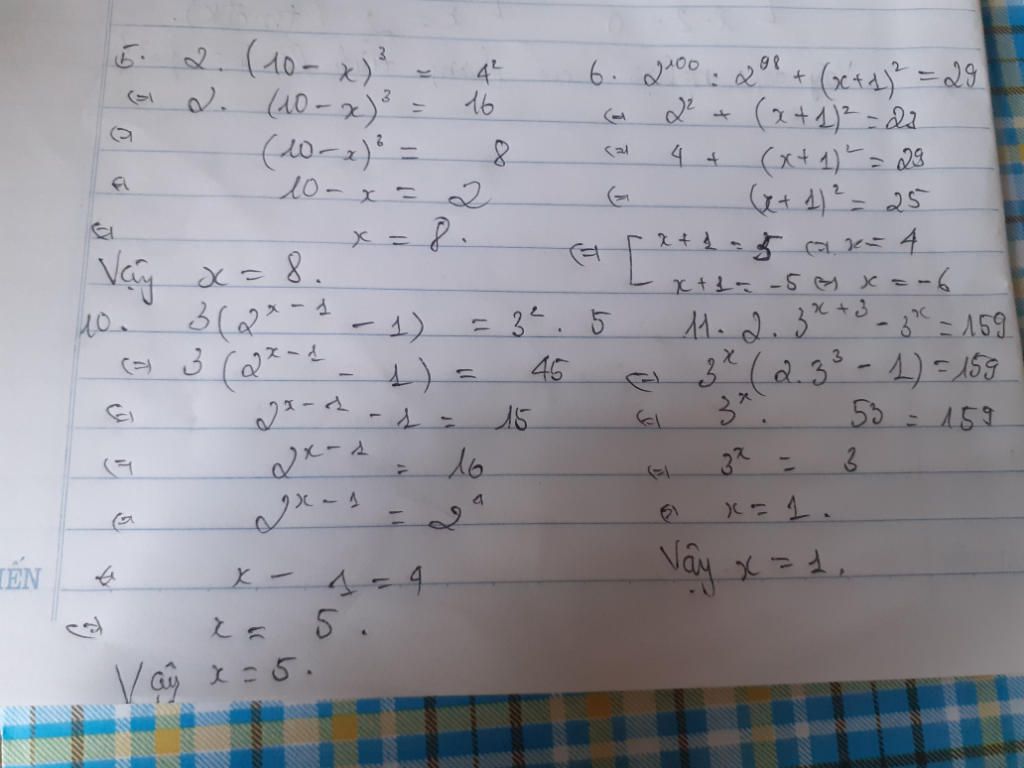 5. 2. (10 - x)³ = 4²
⇔ 2. (10 - x)³ = 16
⇔ (10 - x)³ = 8
⇔ 10 - x = 2
⇔ x = 8.
Vậy x = 8.
6. 2¹⁰⁰ : 2⁹⁸ + (x+1)² = 29
⇔ 2² + (x+1)² = 29
⇔ 4 + (x+1)² = 29
⇔ (x+1)² = 25
⇔ [ x+1 = 5 ⇔ x = 4
x+1 = -5 ⇔ x = -6
10. 3(2ˣ⁻¹ - 1) = 3². 5
⇔ 3(2ˣ⁻¹ - 1) = 45
⇔ 2ˣ⁻¹ - 1 = 15
⇔ 2ˣ⁻¹ = 16
⇔ 2ˣ⁻¹ = 2⁴
⇔ x - 1 = 4
⇔ x = 5.
Vậy x = 5.
11. 2. 3ˣ⁺³ - 3ˣ = 159
⇔ 3ˣ (2.3³ - 1) = 159
⇔ 3ˣ. 53 = 159
⇔ 3ˣ = 3
⇔ x = 1.
Vậy x = 1.
IẾN